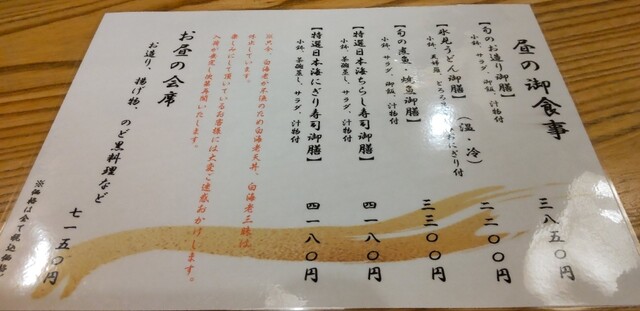 昼の御食事
【旬のお造り御膳】 三八五〇円
小鉢、サラダ、御飯、汁物付
【氷見うどん御膳】（温・冷） 二二〇〇円
おにぎり付
【旬の煮魚・焼魚御膳】 三三〇〇円
小鉢、サラダ、御飯、汁物付
【特選日本海ちらし寿司御膳】 四一八〇円
小鉢、茶碗蒸し、サラダ、汁物付
【特選日本海にぎり寿司御膳】 四一八〇円
小鉢、茶碗蒸し、サラダ、汁物付
白海老が不漁のため白海老天丼、白海老三昧は、
停止しています。
楽しみにして頂いているお客様には大変ご迷惑おかけします。
入荷が安定し次第再開いたします。
お昼の会席
お造り、揚げ物、のど黒料理など 七一五〇円
※価格は全て税込価格